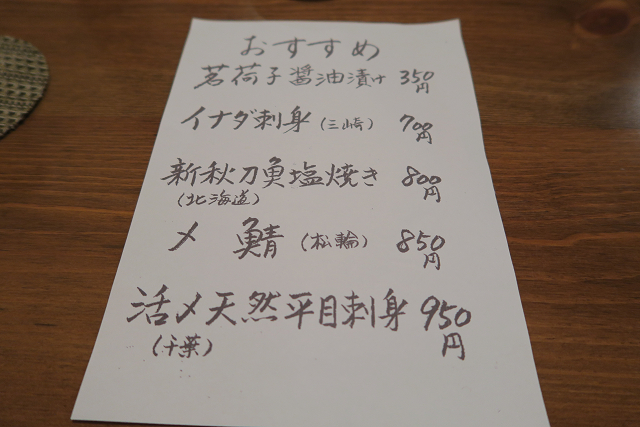 おすすめ
茗荷子醤油漬け 350円
イナダ刺身（三崎） 700円
新秋刀魚塩焼き 800円
（北海道）
〆 鯖（松輪） 850円
活〆天然平目刺身 950円
（千葉）